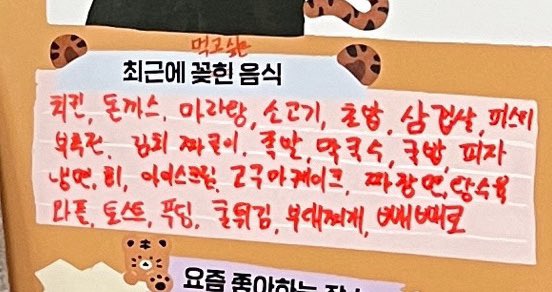 먹고싶은
최근에 꽂힌 음식
치킨, 돈까스, 마라탕, 소고기, 초밥, 삼겹살, 피스타치오
부추전, 김치 짜글이, 족발, 막국수, 국밥, 피자
냉면, 회, 아이스크림, 고구마케이크, 짜장면, 탕수육
와플, 토스트, 푸딩, 굴튀김, 부대찌개, 빼빼로
요즘 좋아하는